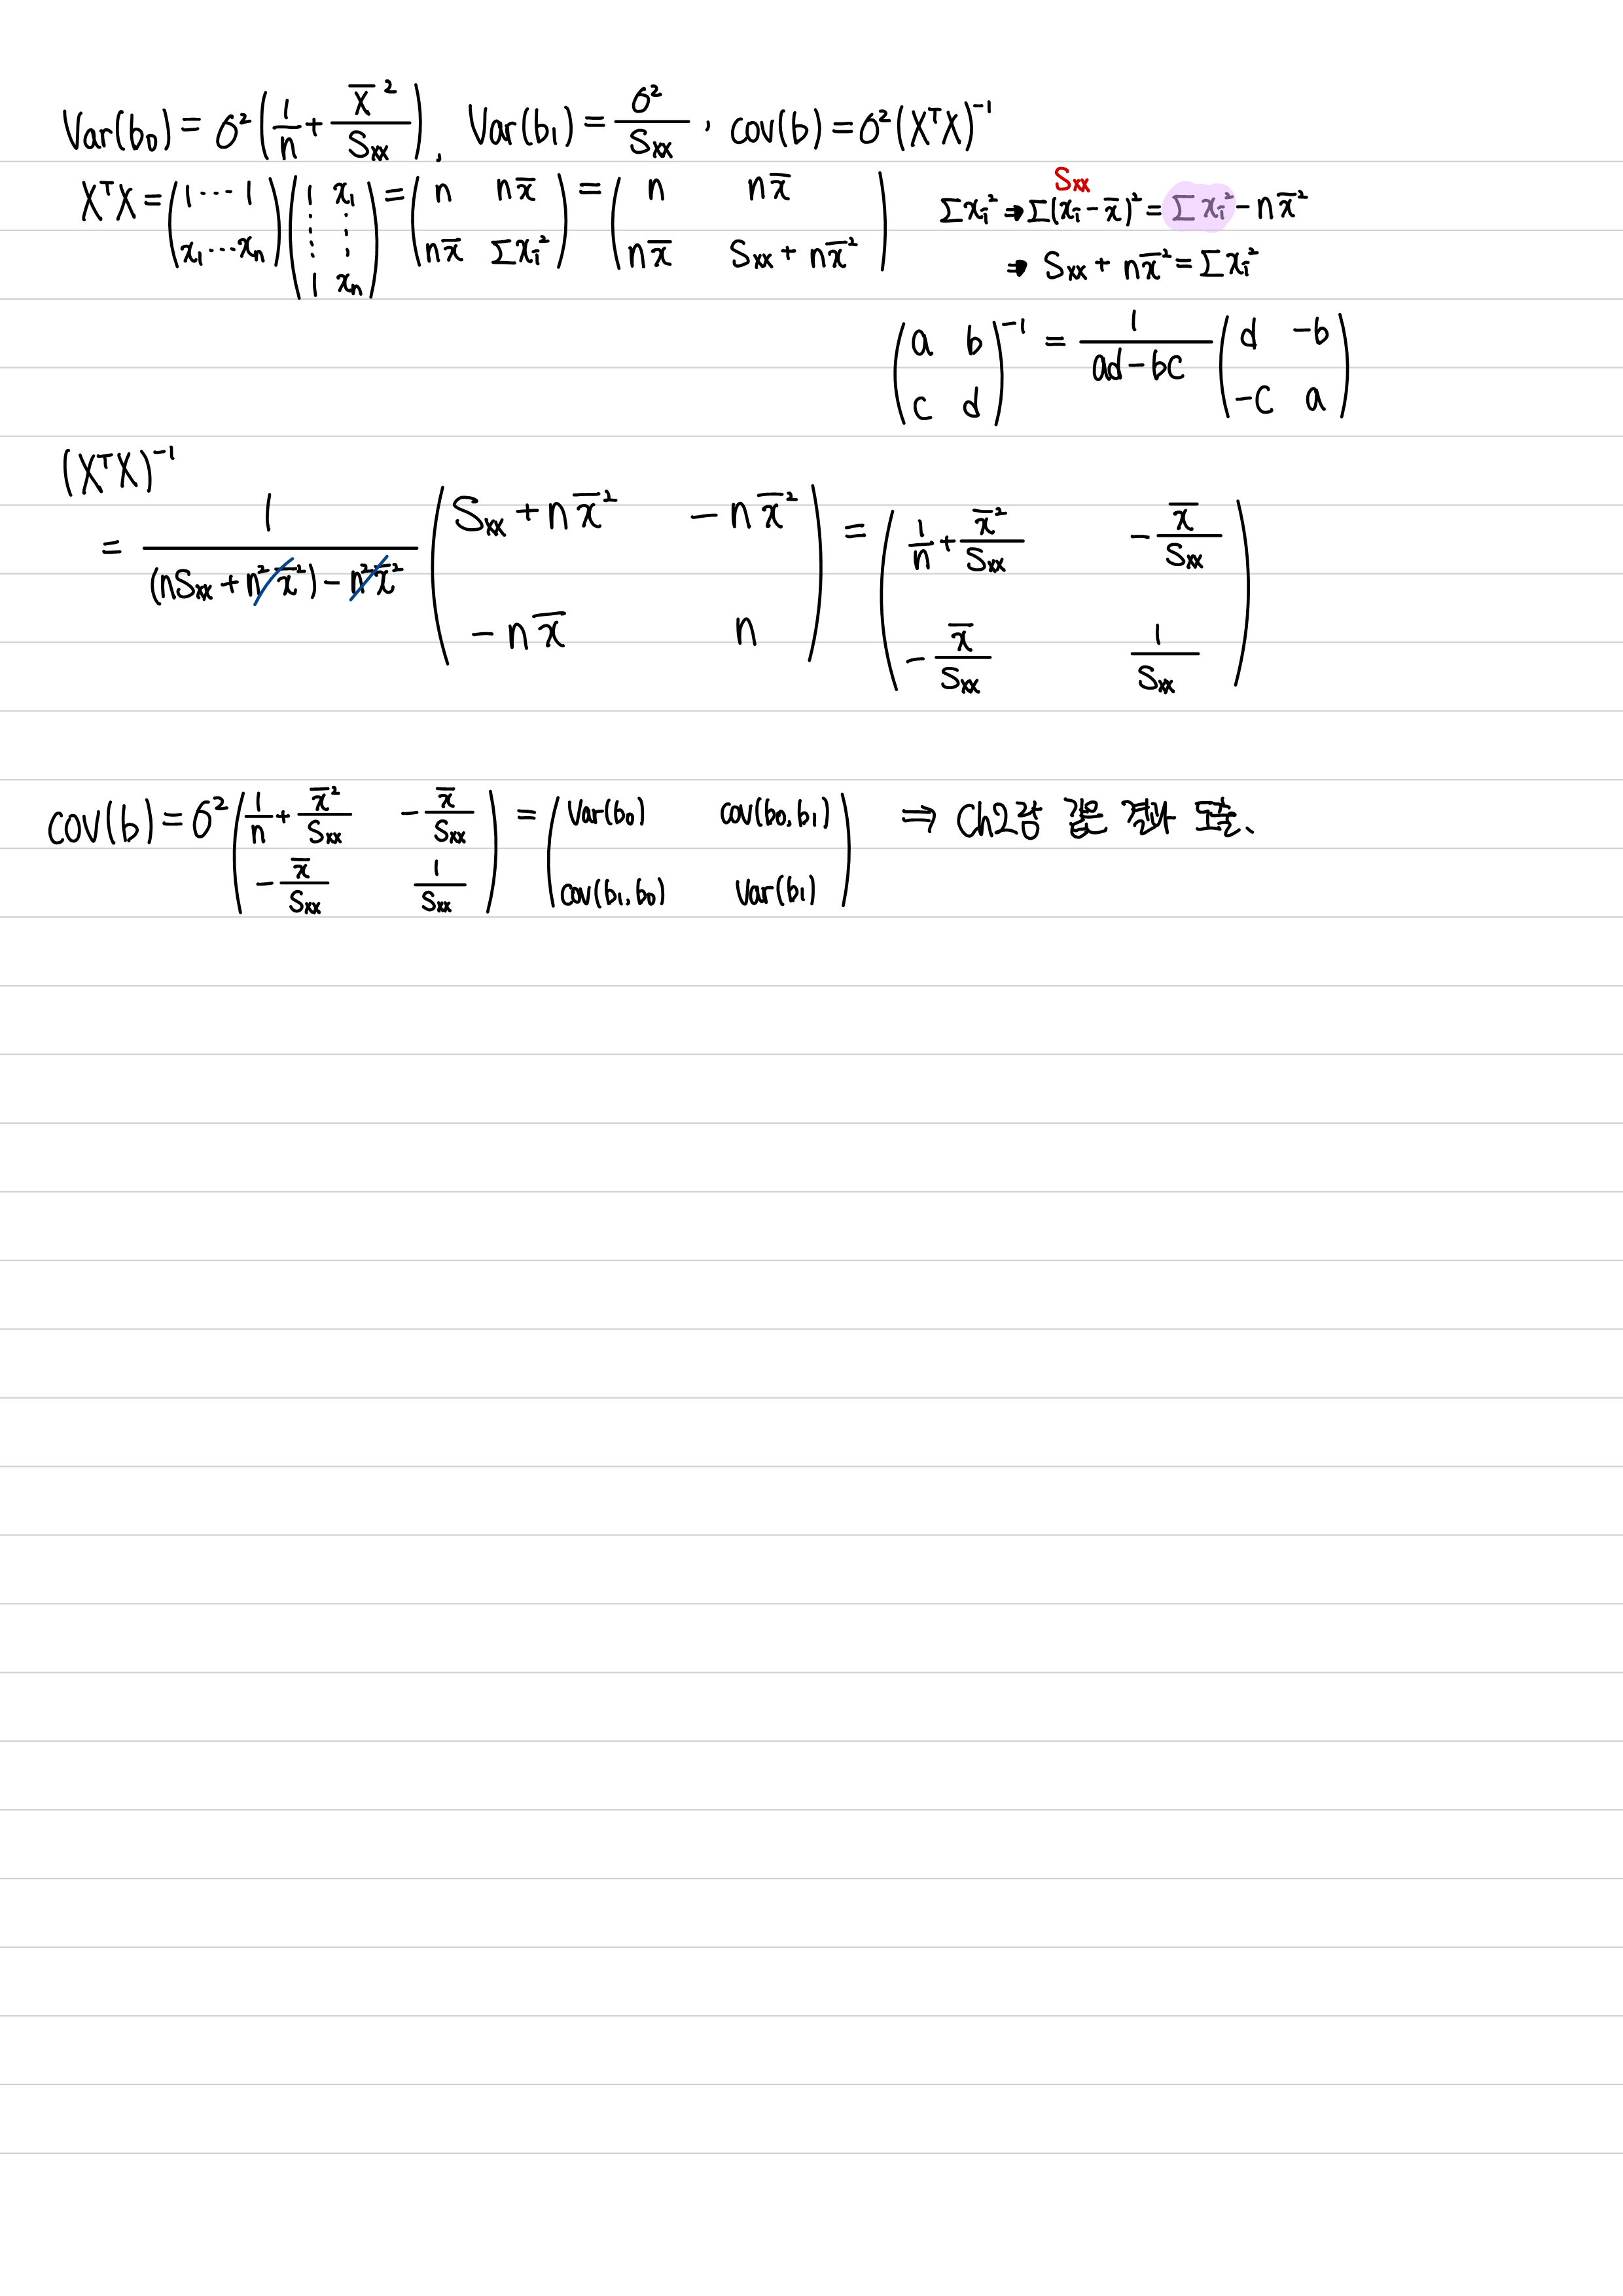 Var(b₀) = σ² (1/n + X̄²/Sxx), Var(b₁) = σ²/Sxx, cov(b) = σ² (XᵀX)⁻¹
XᵀX = (1 ··· 1 ; x₁ ··· xₙ) (1 x₁ ; ⋮ ⋮ ; 1 xₙ) = (n nx̄ ; nx̄ Σxᵢ²) = (n nx̄ ; nx̄ Sxx + nx̄²)
Sxx
Σxᵢ² ⇒ Σ(xᵢ - x̄)² = Σxᵢ² - nx̄²
⇒ Sxx + nx̄² = Σxᵢ²
(a b ; c d)⁻¹ = 1/(ad - bc) (d -b ; -c a)
(XᵀX)⁻¹
= 1/((nSxx + n²x̄²) - n²x̄²) (Sxx + nx̄² -nx̄² ; -nx̄ n) = (1/n + x̄²/Sxx -x̄/Sxx ; -x̄/Sxx 1/Sxx)
cov(b) = σ² (1/n + x̄²/Sxx -x̄/Sxx ; -x̄/Sxx 1/Sxx) = (Var(b₀) cov(b₀, b₁) ; cov(b₁, b₀) Var(b₁)) ⇒ Ch2와 같은 결과 도출.